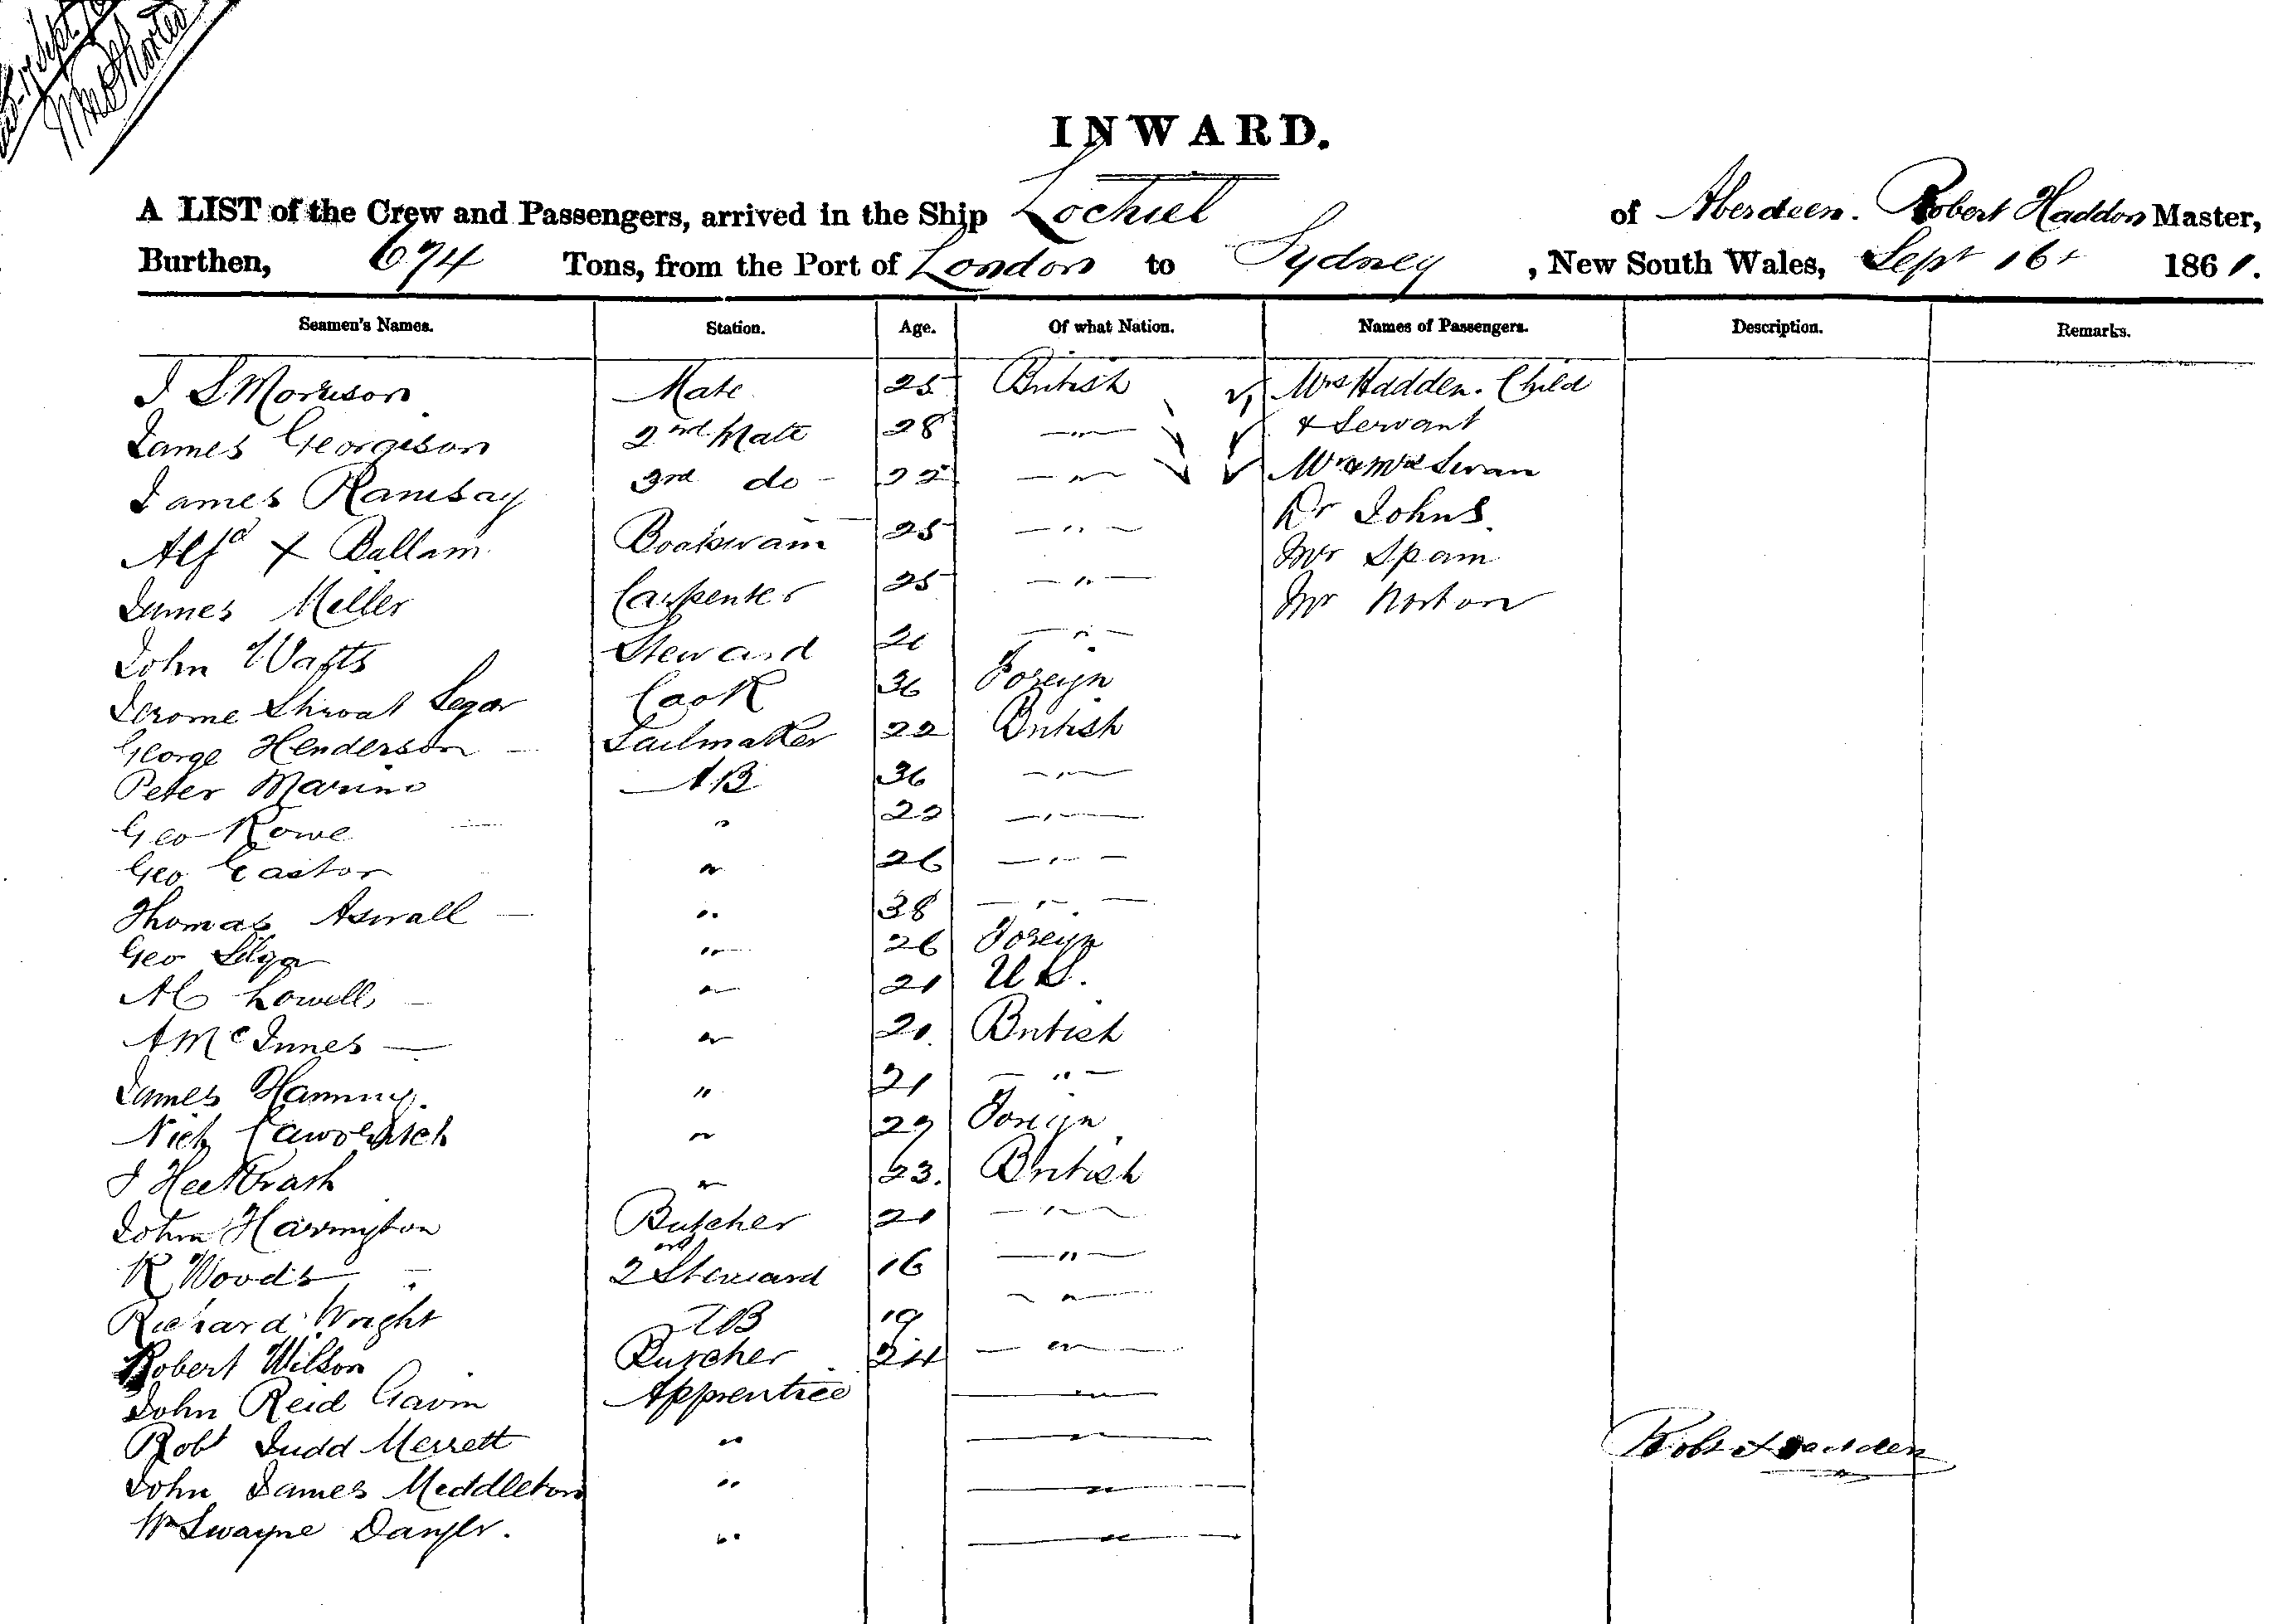 17 Sept
INWARD.
A LIST of the Crew and Passengers, arrived in the Ship Lochiel of Aberdeen. Robert Haddon Master,
Burthen, 694 Tons, from the Port of London to Sydney, New South Wales, Sept 16t 1861.
Seamen's Names. Station. Age. Of what Nation. Names of Passengers. Description. Remarks.
J S Morrison Mate 25 British Mrs Hadden. Child
James Georgeson 2nd Mate 28 — " — & Servant
James Ramsay 3rd do - 22 — " — Mr & Mrs Swan
Alfd X Ballam Boatswain 25 — " — Dr Johns.
James Miller Carpenter 25 — " — Mr Spain
John Watts Steward 21 — " — Mr Norton
Jerome Segar Cook 36 Foreign
George Henderson — Sailmaker 22 British
Peter Marino AB 36 — " —
Geo Rowe " 22 — " —
Geo Eastor " 26 — " —
Thomas Aswall — " 38 — " —
Geo Silga " 26 Foreign
Lowell — " 21 U S.
A McInnes — " 20. British
James Hanning. " 21 — " —
Nich " 29 Foreign
J " 23. British
John Harrington Butcher 21 — " —
R Woods 2nd Steward 16 — " —
Richard Wright AB 19 — " —
Robert Wilson Butcher 24 — " —
John Reid Gavin Apprentice — " —
Robt Judd Merrett " — " —
John James Middleton " — " —
Wm Swayne " — " —
Robt Hadden